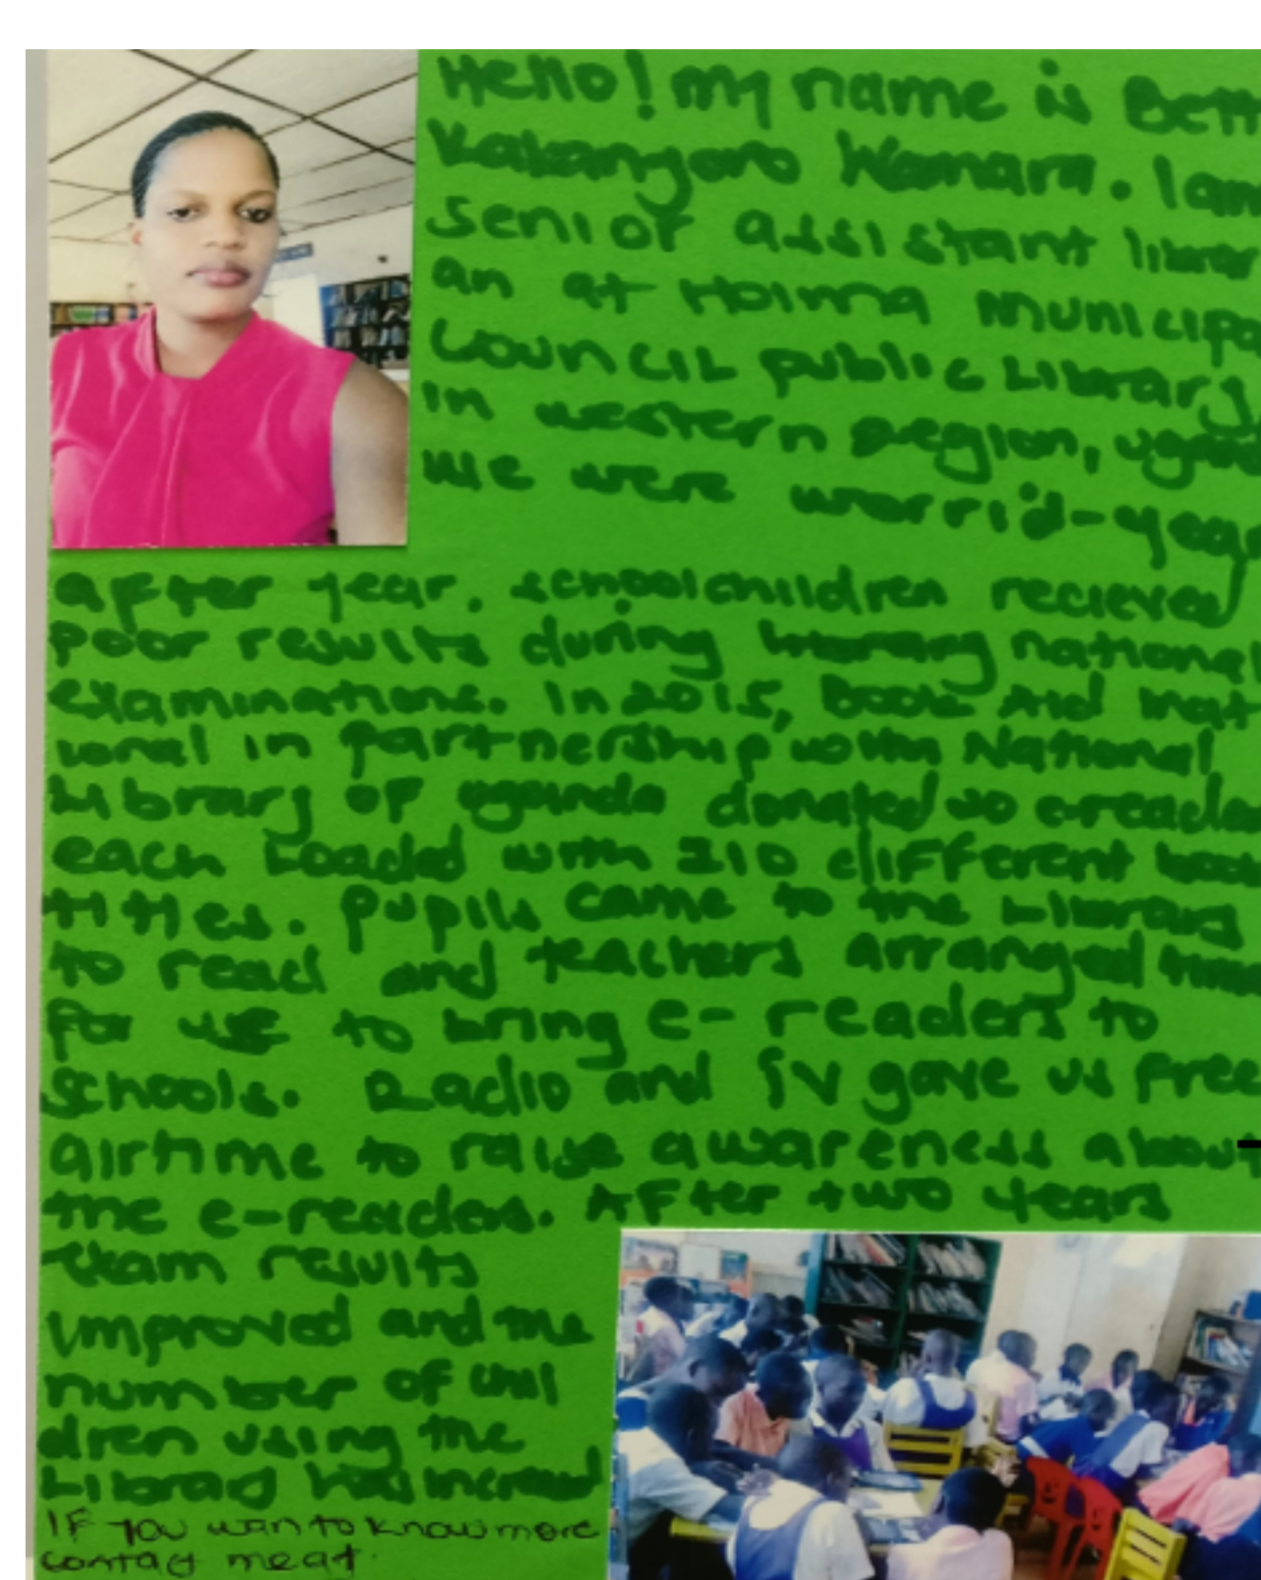 Hello! my name is Bett
Kabangoro Wamara. I am
senior assistant librar
an at Hoima Municipa
Council public Library
in western region, ugan
We were worrid-yea
after year. schoolchildren recieved
poor results during national
examinations. In 2015, book Aid
ional in partnership with National
Library of uganda donated e-reade
each Loaded with 210 different boo
titles. Pupils came to the Library
to read and teachers arranged time
for us to bring e-readers to
schools. Radio and TV gave us free
airtime to raise awareness about
the e-readers. After two years
exam results
improved and the
number of chil
dren using the
Library has increased
IF you wan to know more
contact me at.